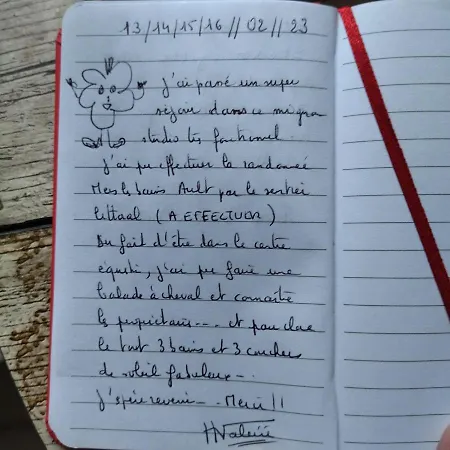 13/14/15/16 // 02 // 23
J'ai passé un super
séjour dans ce micron
studio très fonctionnel.
J'ai pu effectuer la randonnée
Mers les bains Ault par le sentier
littoral (A EFFECTUER)
Du fait d'être dans le centre
équestre, j'ai pu faire une
balade à cheval et connaître
les propriétaires --- et pour clore
le tout 3 bains et 3 couchers
de soleil fabuleux --
J'espère revenir -- Merci !!
Valérie